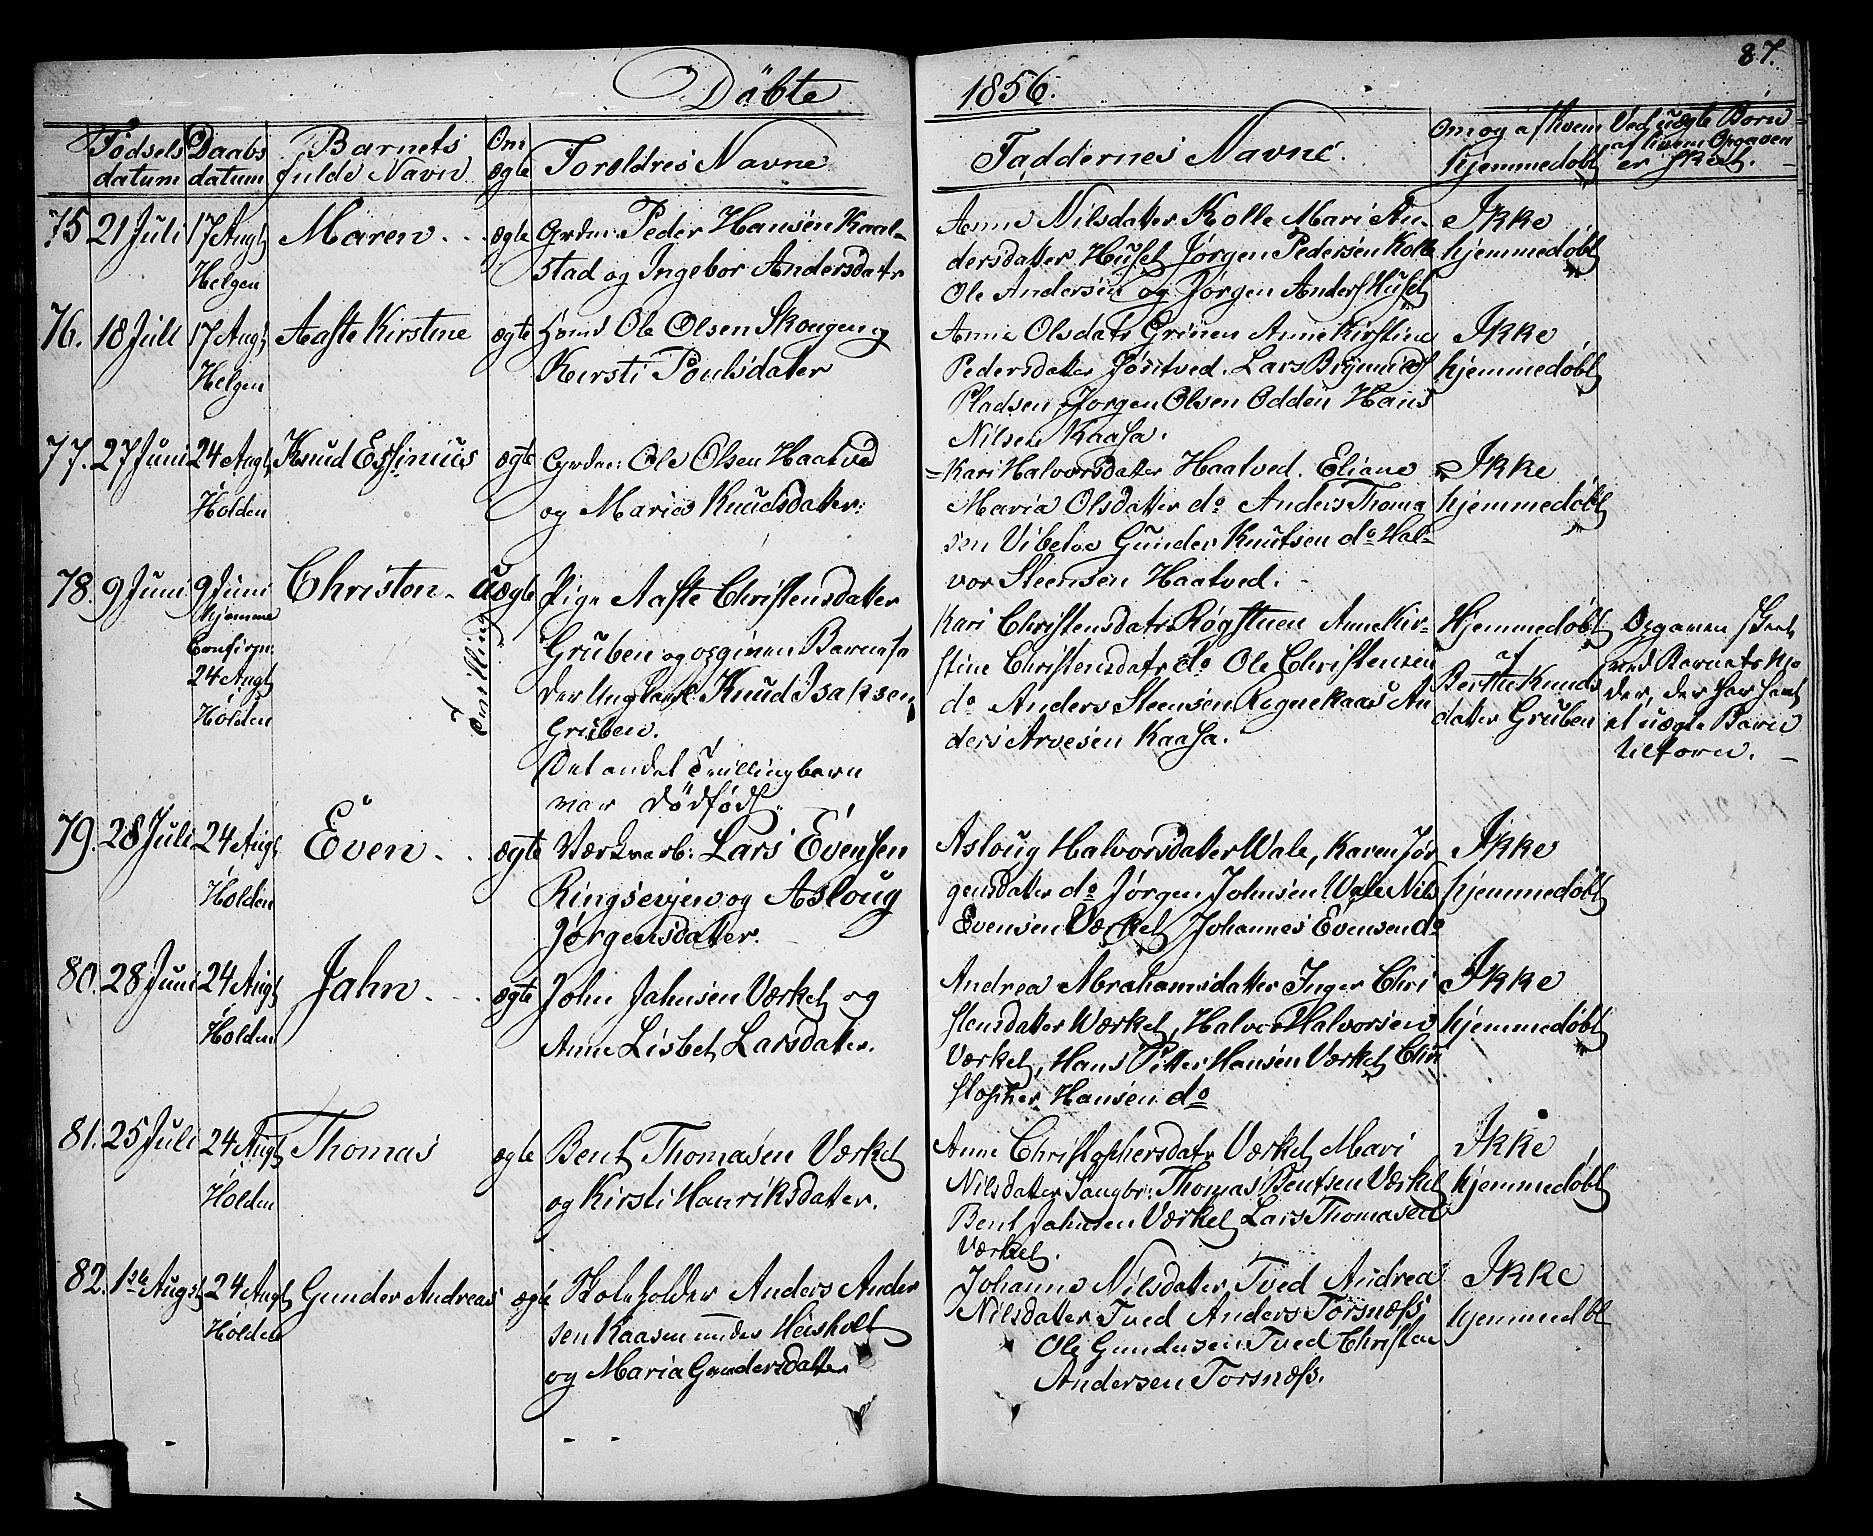 87.
Döbte 1856.
Fødsels datum
Daabs datum
Barnets fulde Navn
Om ægte
Foreldres Navne
Faddernes Navne.
Om og af hvem hjemmedøbt
Ved uægte Börn af hvem Opgaven er skeet.
75 21 Juli 17 Augt Helgen
Maren . . ægte
Grdm: Peder Hansen Kaal-
stad og Ingebor Andersdatr
Anne Nilsdatter Kolle Mari An-
dersdatter Huset Jørgen Pedersen Kolle
Ole Andersen og Jørgen Anders Huset
Ikke
hjemmedøbt
76. 18 Juli 17 Augt Helgen
Aaste Kirstine ægte
Huusmd Ole Olsen Skougen og
Kirsti Poulsdatter
Anne Olsdatr Grinen Anne Kirstine
Pedersdatter Jøntved. Lars Brynnildf
Pladsen Jorgen Olsen Odden Hans
Nilsen Kaasa.
Ikke
hjemmedøbt
77. 27 Juni 24 Augt Holden
Knud Essinius ægte
Grdm: Ole Olsen Haatved
og Maria Knudsdatter:
Kari Halvorsdatter Haatved. Eliane
Maria Olsdatter do Anders Thoma
sen Vibetoe Gunder Knutsen do Hal-
vor Steensen Haatved.
Ikke
hjemmedøbt
78. 9 Juni 9 Juni hjemme
Confirm: 24 Augt Holden
Christen . uægte
Tvilling
Pige Aaste Christensdatter
Gruben og opgiven Barnefa
der Ungkarl Knud Isaksen
Gruben.
Det andet Tvillingbarn
var dödfödt.
Kari Christensdatr Røgstuen Anne Kir-
stine Christensdatr do Ole Christensen
do Anders Steensen Rognekaas An
ders Arvesen Kaasa.
Hjemmedøbt
af
Berthe Knuds
datter Gruben
Opgaven skeet
ved Barnets Mo
der, der har havt
et uægte Barn
tilforn.
79. 28 Juli 24 Augt Holden
Even . . ægte
Værksarb: Lars Evensen
Ringsevjen og Asloug
Jørgensdatter.
Asloug Halvorsdatter Wale, Karen Jør
gensdatter do Jørgen Johnsen Wale Nils
Evensen Værket Johannes Evensen do
Ikke
hjemmedøbt
80. 28 Juni 24 Augt Holden
Jahn . . ægte
John Jahnsen Værket og
Anne Lisbet Larsdatter.
Andrea Abrahamsdatter Inger Chri
stensdatter Værket, Halvor Halvorsen
Værket, Hans Petter Hansen Værket Chri
stopher Hansen do
Ikke
hjemmedøbt
81. 25 Juli 24 Augt Holden
Thomas ægte
Bent Thomasen Værket
og Kirsti Hanriksdatter.
Anne Christophersdatr Værket Mari
Nilsdatter Saugbr: Thomas Bentsen Værket
Bent Jahnsen Værket Lars Thomasen
Værket.
Ikke
hjemmedøbt
82. 1ste Augst 24 Augt Holden
Gunder Andreas ægte
Skoleholder Anders Ander
sen Kaasen under Heisholt
og Maria Gundersdatter
Johanne Nilsdatter Tved Andrea
Nilsdatter Tved Anders Torsnæss
Ole Gundersen Tved Christen
Andersen Torsnæss.
Ikke
hjemmedbt